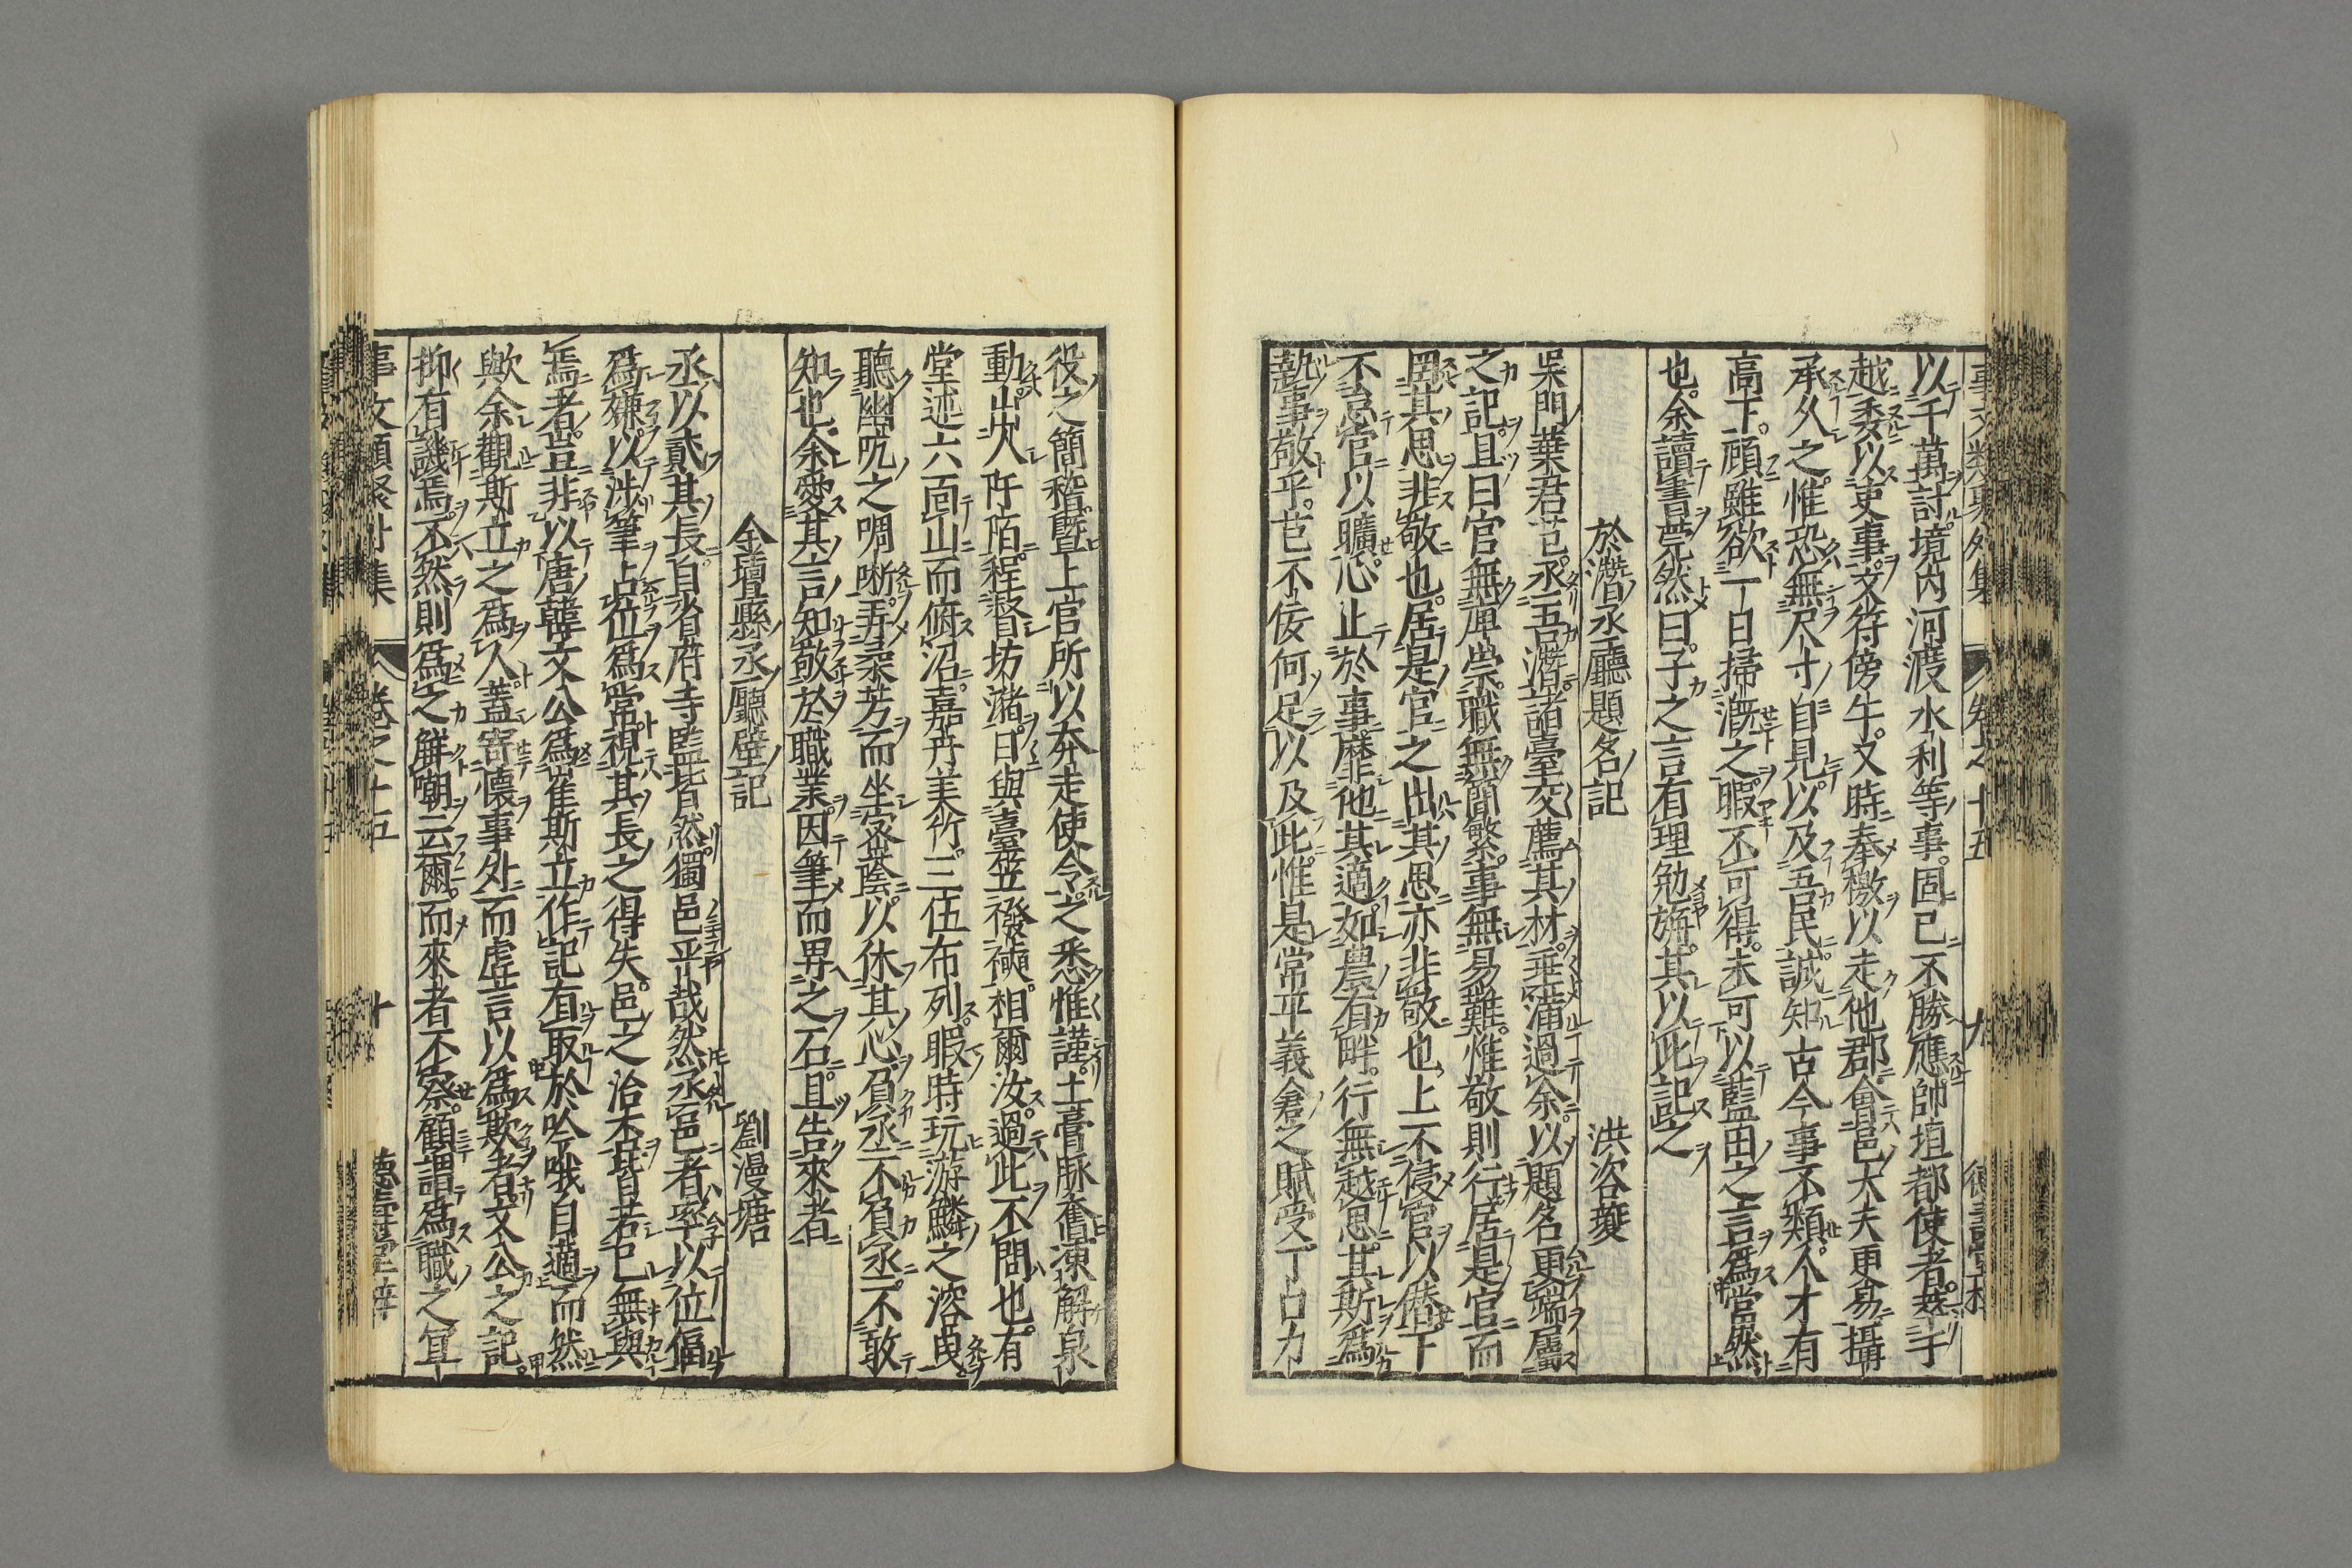 以千萬討境内河渡水利等事固已不勝應帥垣都使者萃于
越委以吏事文符傍午又時奉檄以走他郡會邑大夫更易攝
承久之惟恐無尺寸自見以及吾民誠知古今事不類人才有
高下顧雖欲一日掃溉之暇不可得未可以藍田之言爲當然
也余讀書莞然曰子之言有理勉旃其以此記之
於潛丞廳題名記 洪咨夔
吳門葉君芑丞吾潛諸臺交薦其材垂滿過余以題名更端屬
之記且曰官無庳崇職無簡繁事無易難惟敬則行居是官而
罔其思非敬也居是官之出其思亦非敬也上不侵官以僭下
不怠官以曠心止於事靡他其適如農有畔行無越思其斯爲
執事敬乎芑不佞何足以及此惟是常平義倉之賦受丁占力
役之簡稽暨上官所以奔走使令之悉惟謹土膏脉奮凍解泉
動出入阡陌程督坊瀦日與臺笠襏襫相爾汝過此不問也有
堂述六面山而俯沼嘉卉美竹三伍布列暇時玩游鱗之溶曳
聽幽吭之啁哳弄柔芳而坐密蔭以休其心負丞不負丞不敢
知也余愛其言知敬於職業因筆而畀之石且告來者
金壇縣丞廳壁記 劉漫塘
丞以貳其長自省府寺監皆然獨邑乎哉然丞邑者率以位偪
爲嫌以涉筆占位爲常視其長之得失邑之治不皆若已無與
焉者豈非以唐韓文公爲崔斯立作記有取於吟哦自適而然
歟余觀斯立之爲人蓋寄懷事外而虛言以爲欺者文公之記
抑有譏焉不然則爲之解嘲云爾而來者不察顧謂爲職之宜
事文類聚外集 卷之十五 十